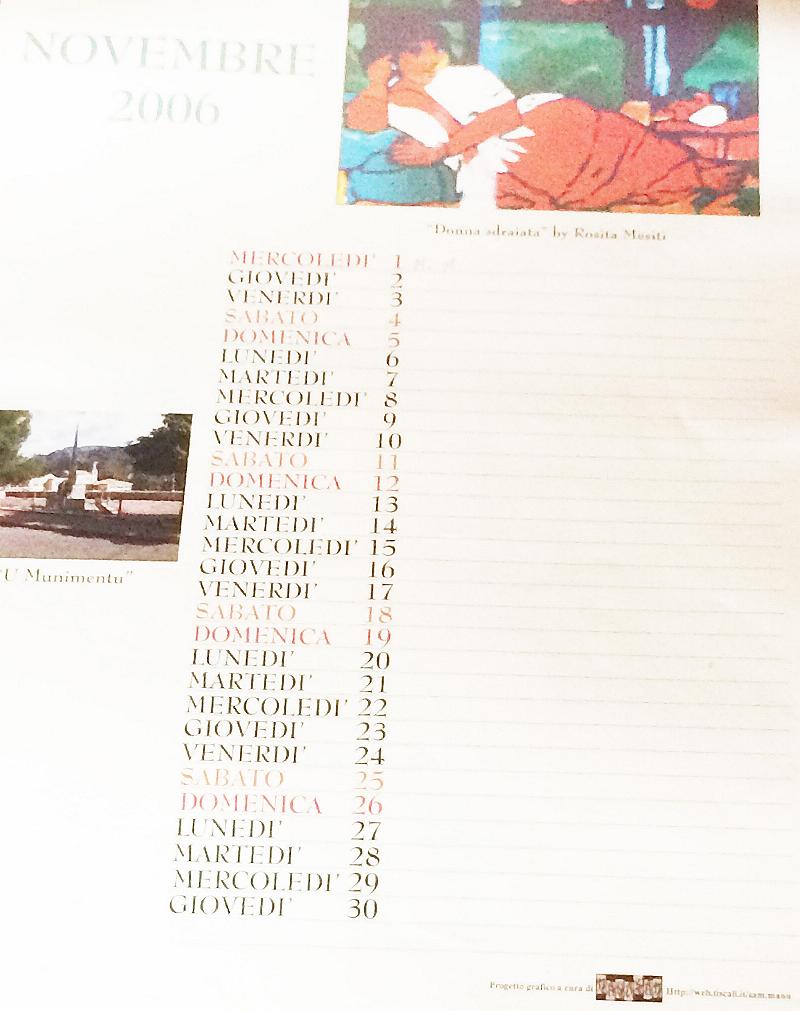 NOVEMBRE
2006
"Donna sdraiata" by Rosita Mesiti
MERCOLEDI' 1
GIOVEDI' 2
VENERDI' 3
SABATO 4
DOMENICA 5
LUNEDI' 6
MARTEDI' 7
MERCOLEDI' 8
GIOVEDI' 9
VENERDI' 10
SABATO 11
DOMENICA 12
LUNEDI' 13
MARTEDI' 14
MERCOLEDI' 15
GIOVEDI' 16
VENERDI' 17
SABATO 18
DOMENICA 19
LUNEDI' 20
MARTEDI' 21
MERCOLEDI' 22
GIOVEDI' 23
VENERDI' 24
SABATO 25
DOMENICA 26
LUNEDI' 27
MARTEDI' 28
MERCOLEDI' 29
GIOVEDI' 30
"U Munimentu"
Progetto grafico a cura di